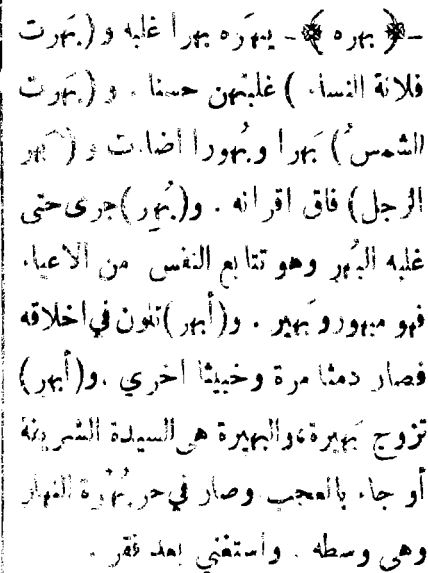 ﴿ بهره ﴾ـ يبهَره بهرا غلبه و (بَهرت
فلانة النساء ) غلبتهن حسنا . و (بَهرت
الشمسُ ) بَهرا وبُهورا اضاءت و ( بَهر
الرجل) فاق اقرانه . و(بُهِر)جرى حتى
غلبه البُهر وهو تتابع النفس من الاعياء
فهو مبهور وبَهير . و(أبهر)تلون في اخلاقه
فصار دمثا مرة وخبيثا اخري .و(أبهر)
تزوج بَهيرة،والبهيرة هى السيدة الشريفة
أو جاء بالعجب وصار في حر بُهْرة النهار
وهى وسطه . واستغني بعد فقر .